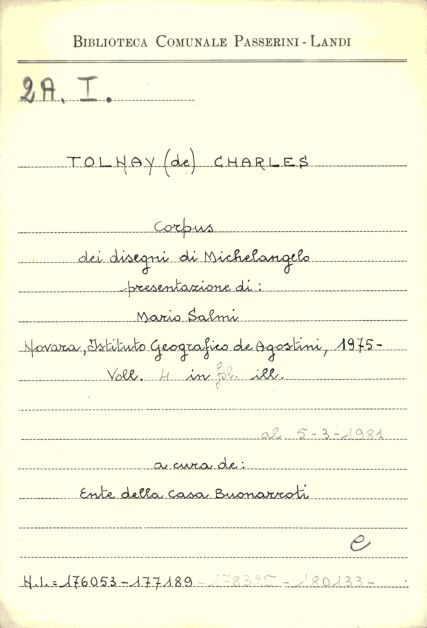 BIBLIOTECA COMUNALE PASSERINI - LANDI
2A. I.
TOLNAY (de) CHARLES
Corpus
dei disegni di Michelangelo
presentazione di:
Mario Salmi
Novara, Istituto Geografico de Agostini, 1975-
Voll. 4 in fol. ill.
al 5-3-1981
a cura de:
Ente della Casa Buonarroti
e
N.I.=176053-177189-178395-180133-